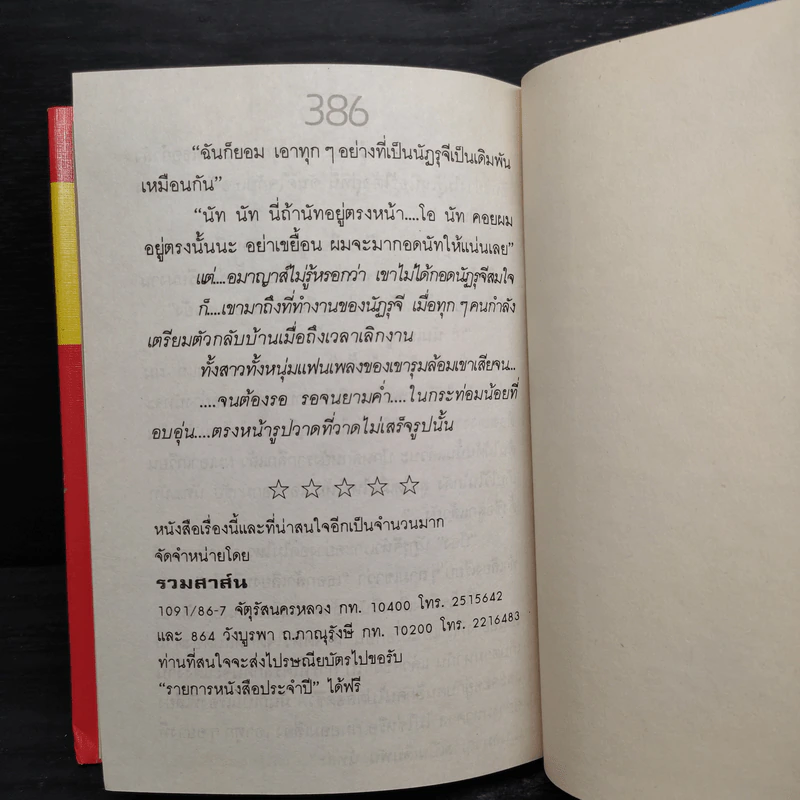 386
“ฉันก็ยอม เอาทุก ๆ อย่างที่เป็นนัฏรุจีเป็นเดิมพัน
เหมือนกัน”
“นัท นัท นี่ถ้านัทอยู่ตรงหน้า....โอ นัท คอยผม
อยู่ตรงนั้นนะ อย่าเขยื้อน ผมจะมากอดนัทให้แน่นเลย”
แต่....อมาญาส์ไม่รู้หรอกว่า เขาไม่ได้กอดนัฏรุจีสมใจ
ก็....เขามาถึงที่ทำงานของนัฏรุจี เมื่อทุก ๆ คนกำลัง
เตรียมตัวกลับบ้านเมื่อถึงเวลาเลิกงาน
ทั้งสาวทั้งหนุ่มแฟนเพลงของเขารุมล้อมเขาเสียจน..
....จนต้องรอ รอจนยามค่ำ....ในกระท่อมน้อยที่
อบอุ่น....ตรงหน้ารูปวาดที่วาดไม่เสร็จรูปนั้น
☆ ☆ ☆ ☆ ☆
หนังสือเรื่องนี้และที่น่าสนใจอีกเป็นจำนวนมาก
จัดจำหน่ายโดย
รวมสาส์น
1091/86-7 จัตุรัสนครหลวง กท. 10400 โทร. 2515642
และ 864 วังบูรพา ถ.ภาณุรังษี กท. 10200 โทร. 2216483
ท่านที่สนใจจะส่งไปรษณียบัตรไปขอรับ
“รายการหนังสือประจำปี” ได้ฟรี